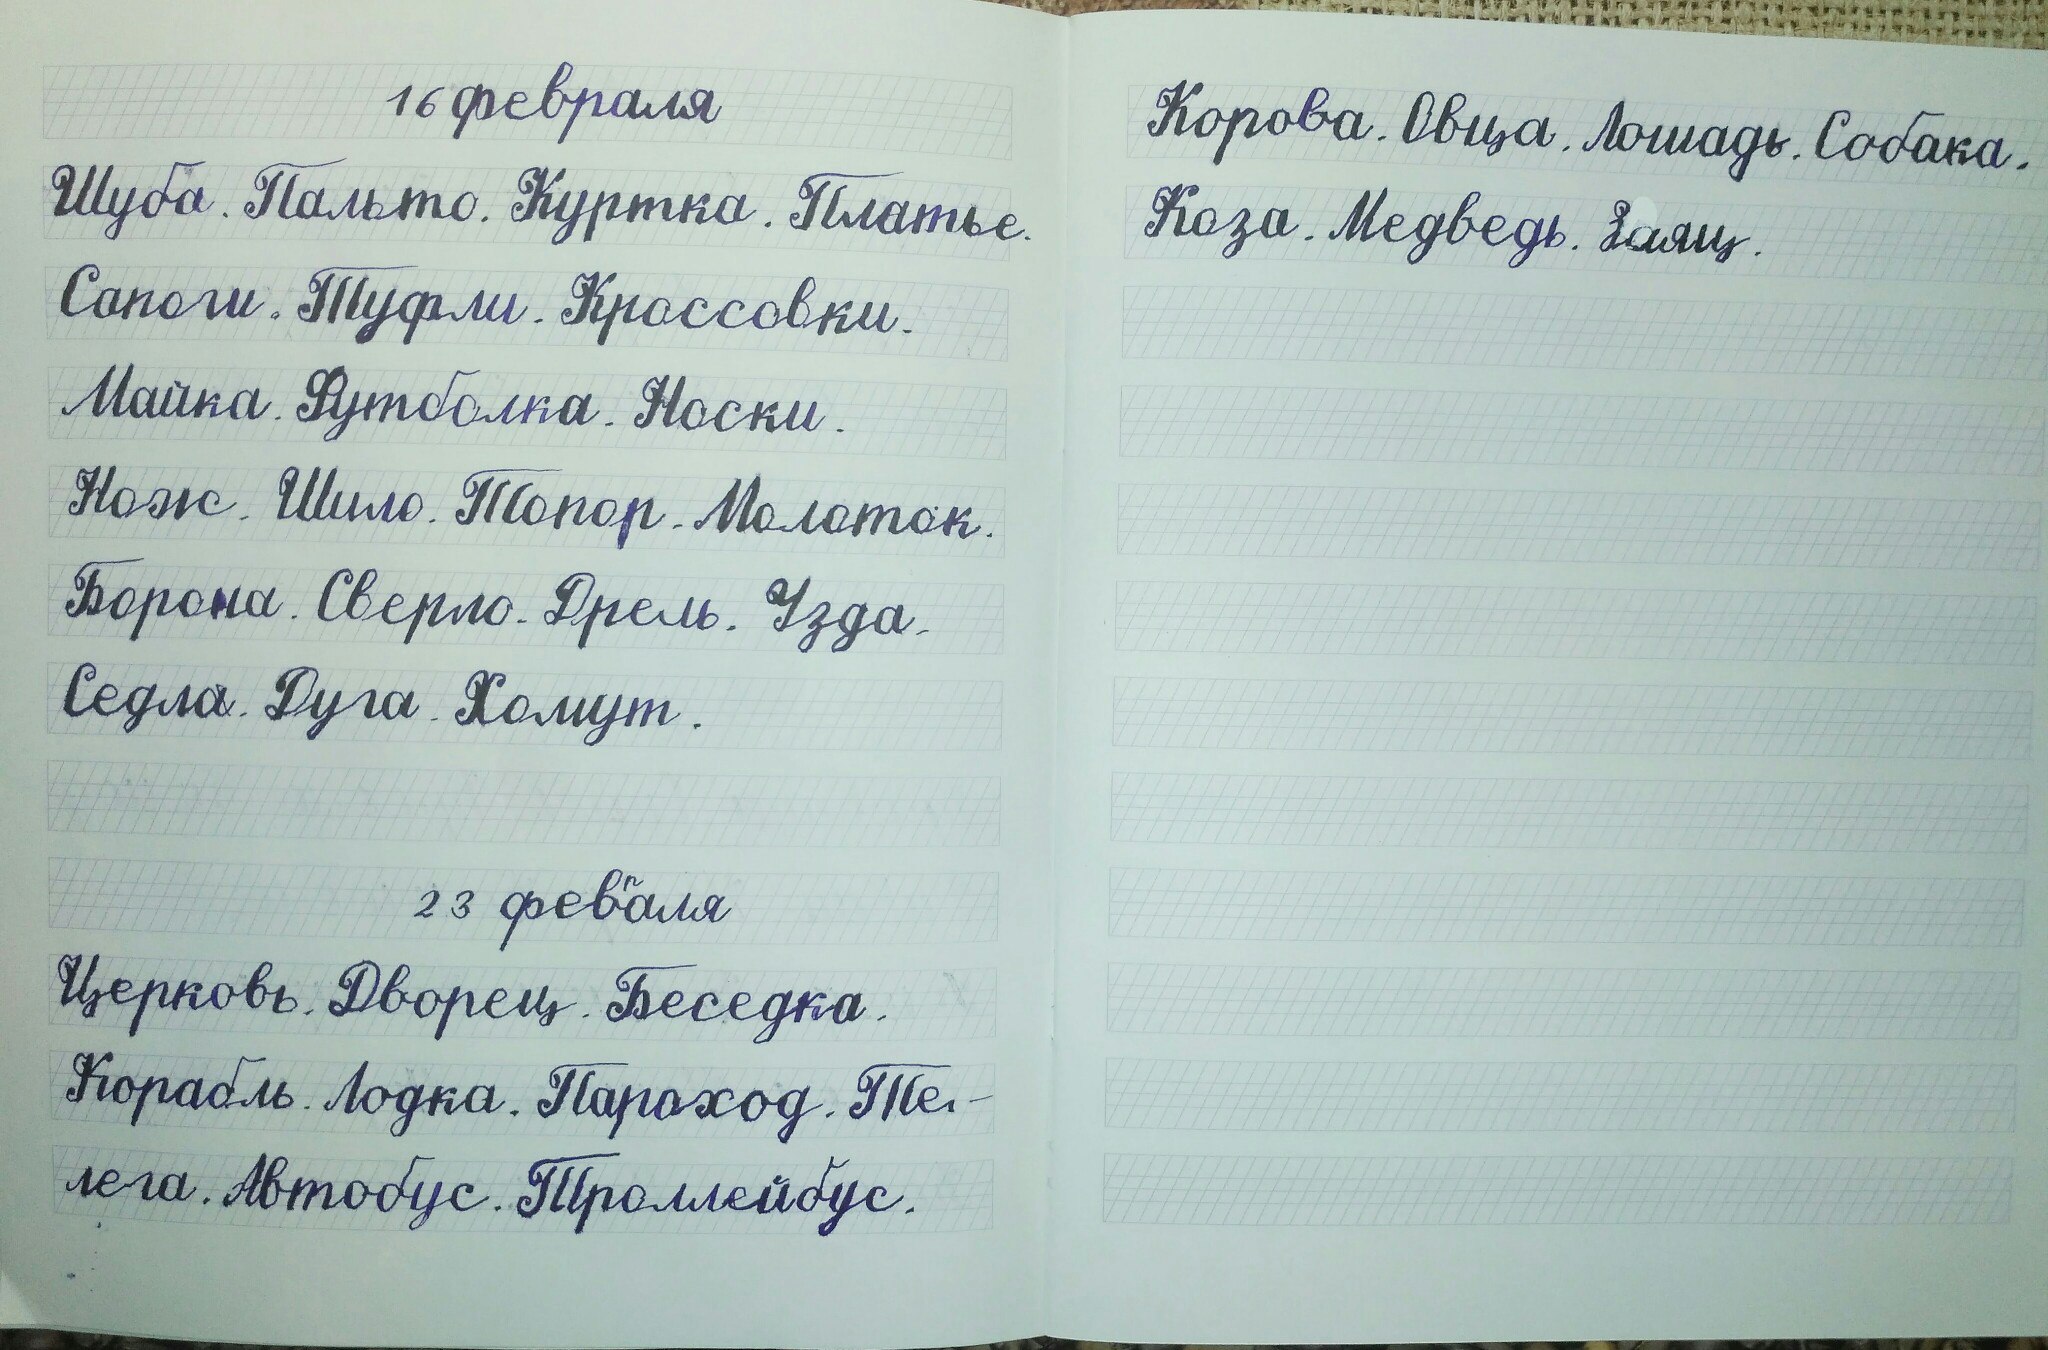 16 февраля
Шуба. Пальто. Куртка. Платье.
Сапоги. Туфли. Кроссовки.
Майка. Футболка. Носки.
Нож. Шило. Топор. Молоток.
Борона. Сверло. Дрель. Узда.
Седла. Дуга. Хомут.
23 февраля
Церковь. Дворец. Беседка.
Корабль. Лодка. Пароход. Те-
лега. Автобус. Троллейбус.
Корова. Овца. Лошадь. Собака.
Коза. Медведь. Заяц.